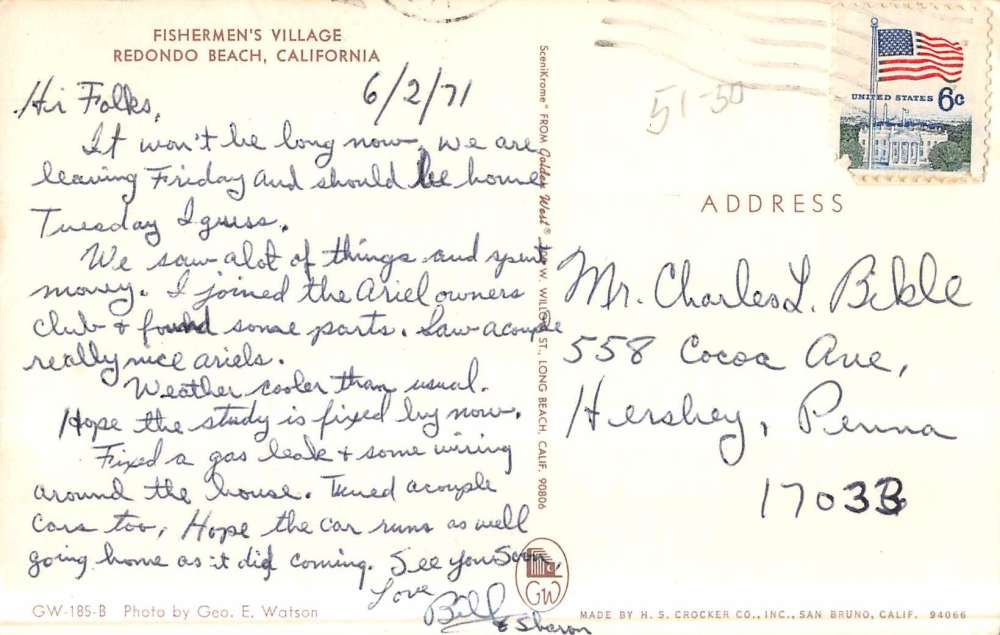 FISHERMEN'S VILLAGE
REDONDO BEACH, CALIFORNIA
6/2/71
Hi Folks,
It won't be long now, we are
leaving Friday and should be home
Tuesday I guess.
We saw alot of things and spent
money. I joined the Ariel owners
club + found some parts. Saw acouple
really nice ariels.
Weather cooler than usual.
Hope the study is fixed by now.
Fixed a gas leak + some wiring
around the house. Tuned acouple
cars too, Hope the car runs as well
going home as it did coming. See you soon,
Love
Bill
& Sharon
GW-185-B Photo by Geo. E. Watson
SceniKrome® FROM Golden West® W. WILLOW ST., LONG BEACH, CALIF. 90806
GW
51-50
UNITED STATES 6c
ADDRESS
Mr. Charles L. Bikle
558 Cocoa Ave,
Hershey, Penna
17033
MADE BY H. S. CROCKER CO., INC., SAN BRUNO, CALIF. 94066